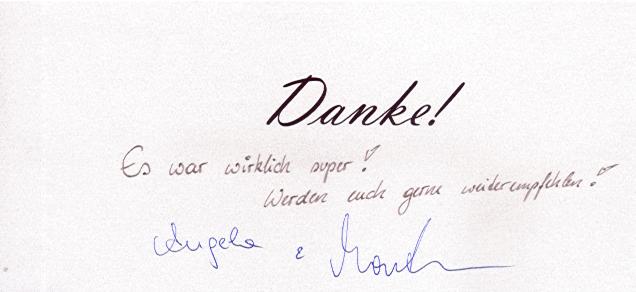 Danke!
Es war wirklich super!
Werden euch gerne weiterempfehlen!
Angela &